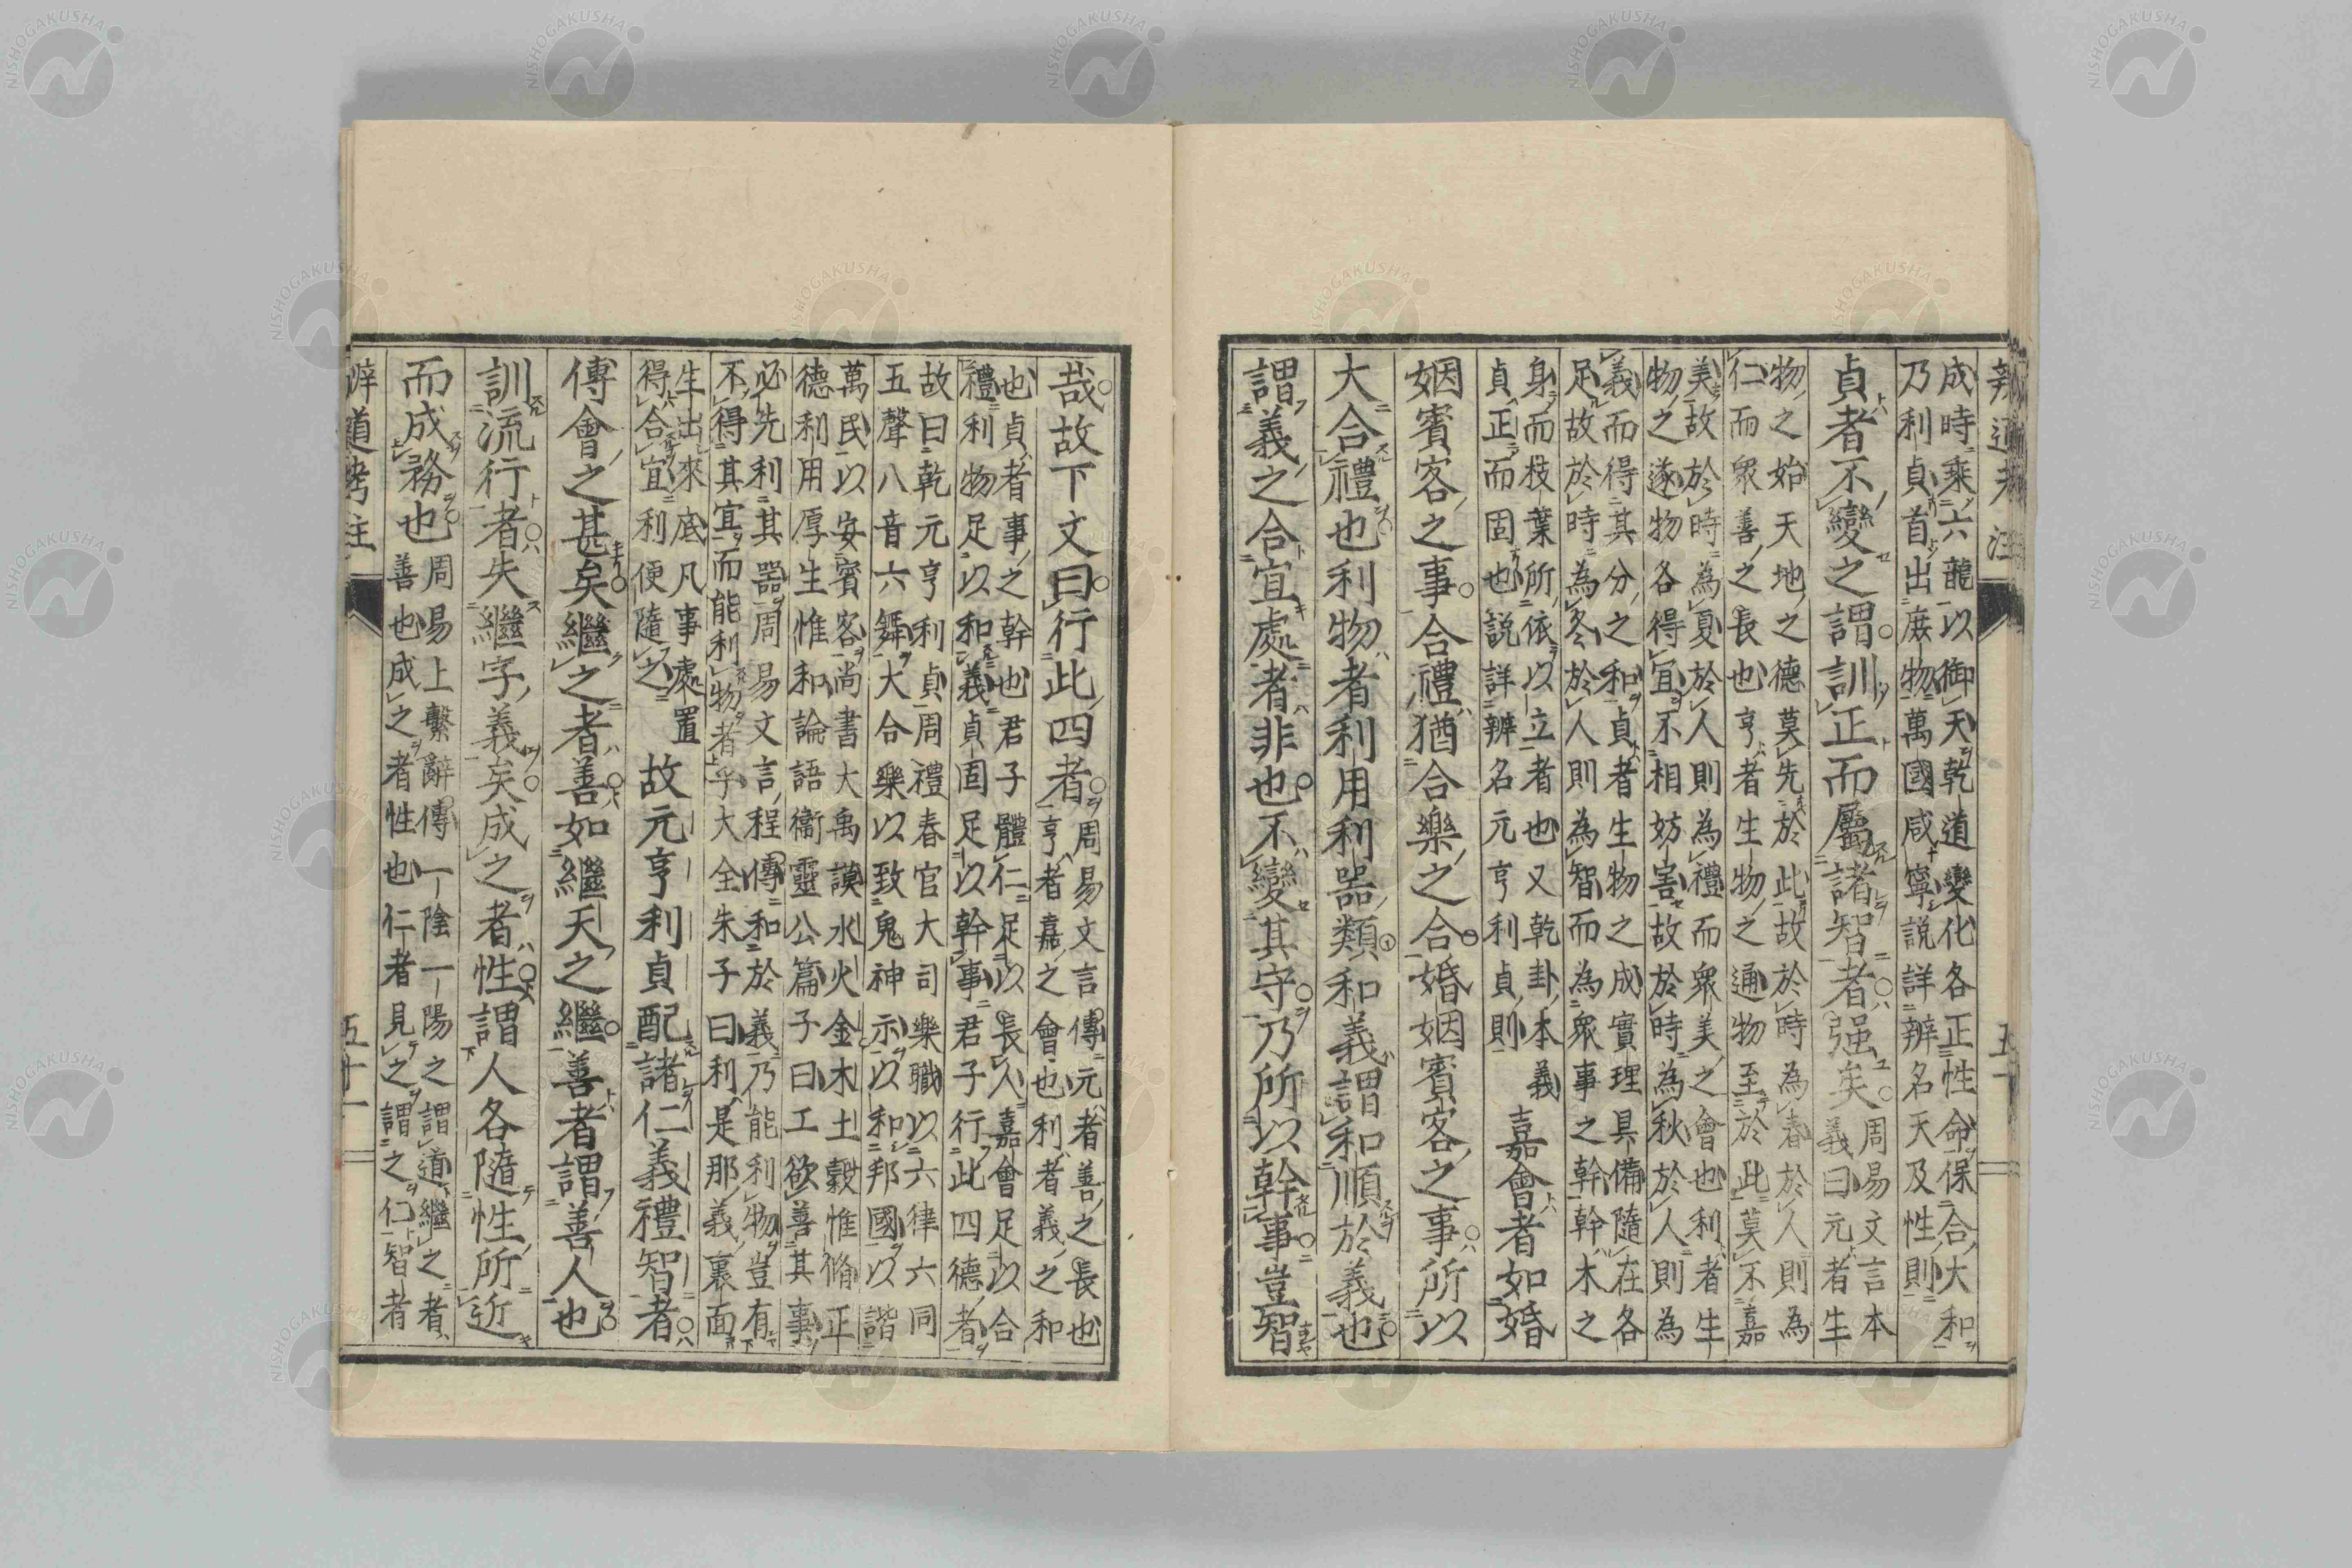 辨道考注
成時乘六龍以御天乾道變化各正性命保合大和
乃利貞首出庶物萬國咸寧說詳辨名天及性則
貞者不變之謂訓正而屬諸智者强矣周易文言本
義曰元者生
物之始天地之德莫先於此故於時為春於人則為
仁而衆善之長也亨者生物之通物至於此莫不嘉
美故於時為夏於人則為禮而衆美之會也利者生
物之遂物各得宜不相妨害故於時為秋於人則為
義而得其分之和貞者生物之成實理具備隨在各
足故於時為冬於人則為智而為衆事之幹幹木之
身而枝葉所依以立者也又乾卦本義
貞正而固也説詳辨名元亨利貞則
嘉會者如婚
姻賓客之事合禮猶合樂之合婚姻賓客之事所以
大合禮也利物者利用利噐類和義謂和順於義也
謂義之合宜處者非也不變其守乃所以幹事豈智
哉故下文曰行此四者周易文言傳元者善之長也
亨者嘉之會也利者義之和
也貞者事之幹也君子體仁足以長人嘉會足以合
禮利物足以和義貞固足以幹事君子行此四德者
故曰乾元亨利貞周禮春官大司樂職以六律六同
五聲八音六舞大合樂以致鬼神示以和邦國以諧
萬民以安賓客尚書大禹謨水火金木土穀惟脩正
德利用厚生惟和論語衞靈公篇子曰工欲善其事
必先利其噐周易文言程傳和於義乃能利物豈有
不得其宜而能利物者乎大全朱子曰利是那義裏面
生出來底凡事處置
得合宜利便隨之
故元亨利貞配諸仁義禮智者
傳會之甚矣繼之者善如繼天之繼善者謂善人也
訓流行者失繼字義矣成之者性謂人各隨性所近
而成務也周易上繫辭傳一陰一陽之謂道繼之者
善也成之者性也仁者見之謂之仁智者
辨道考注 五十一
NISHOGAKUSHA